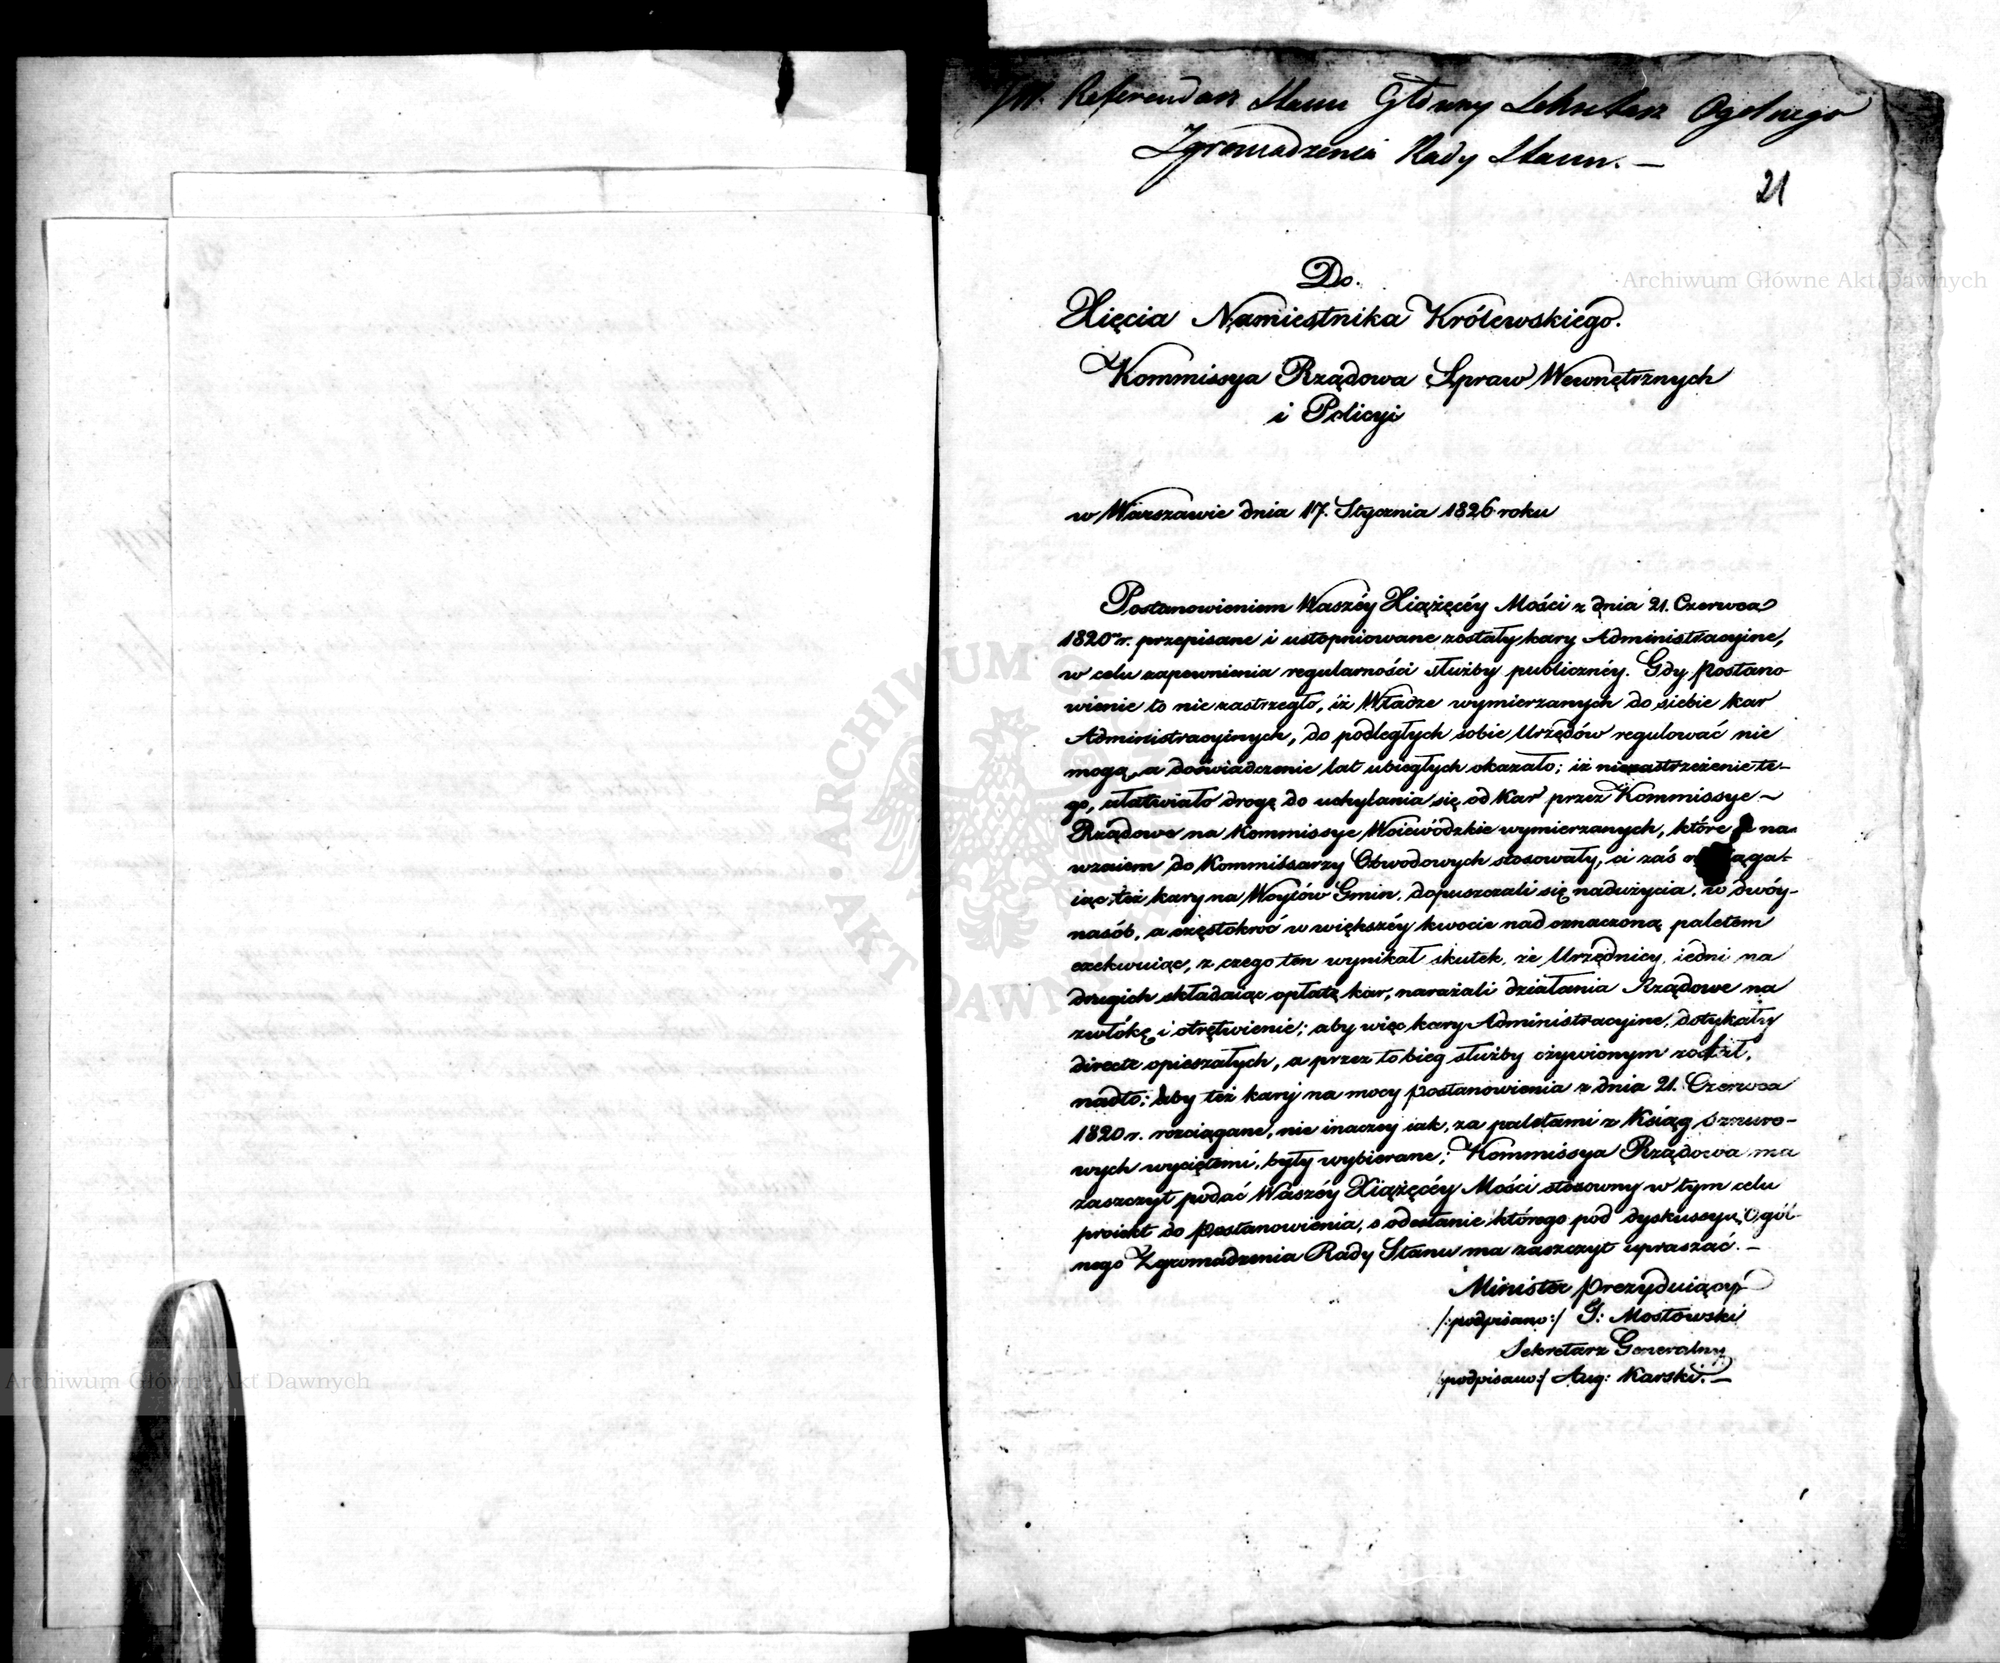 JW. Referendarz Stanu Główny Sekretarz Ogolnego
Zgromadzenia Rady Stanu. —
21
Do.
Xięcia Namiestnika Królewskiego.
Kommissya Rządowa Spraw Wewnętrznych
i Policyi
w Warszawie dnia 17. Stycznia 1826 roku
Postanowieniem Waszéy Xiążęcéy Mości z dnia 21. Czerwca
1820 r. przepisane i ustopniowane zostały kary Administracyine,
w celu zapewnienia regularności służby publicznéy. Gdy Postano-
wienie to nie zastrzegło, iż Władze wymierzanych do siebie kar
Administracyinych, do podległych sobie Urzędów regulować nie
mogą, a doświadczenie lat ubiegłych okazało; iż niezastrzeżenie te-
go, ułatwiało drogę do uchylania się od Kar przez Kommissye
Rządowe na Kommissye Woiewódzkie wymierzanych, które je na-
wzaiem do Kommissarzy Obwodowych stosowały, ci zaś
iąc też kary na Woytów Gmin, dopuszczali się nadużycia, w dwóy-
nasób, a częstokroć w większéy kwocie nad oznaczoną paletem
exekwuiąc, z czego ten wynikał skutek, że Urzędnicy, iedni na
drugich składaiąc opłatę kar, narażali działania Rządowe na
zwłokę i otrętwienie; aby więc kary Administracyine, dotykały
directe opieszałych, a przez to bieg służby ożywionym został,
nadto; aby też kary na mocy postanowienia z dnia 21. Czerwca
1820 r. rozciągane, nie inaczey iak, za paletami z Ksiąg sznuro-
wych wyciętemi, były wybierane; Kommissya Rządowa ma
zaszczyt podać Waszéy Xiążęcéy Mości stosowny w tym celu
proiekt do postanowienia, o odesłanie którego pod dyskussyą Ogól-
nego Zgromadzenia Rady Stanu ma zaszczyt upraszać. —
Minister Prezyduiący
/:podpisano:/ T: Mostowski
Sekretarz Generalny
/podpisano:/ Aug: Karski. —
Archiwum Główne Akt Dawnych
Archiwum Główne Akt Dawnych
ARCHIWUM
AKT DAWN